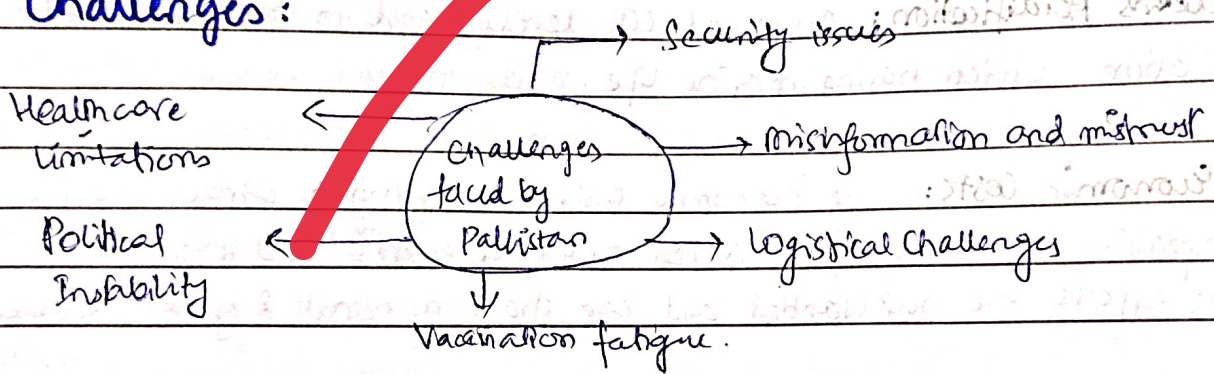 Challenges:
Security issues
Healthcare
Limitations
Challenges
faced by
Pakistan
Misinformation and mistrust
Political
Instability
Logistical Challenges
Vaccination fatigue.